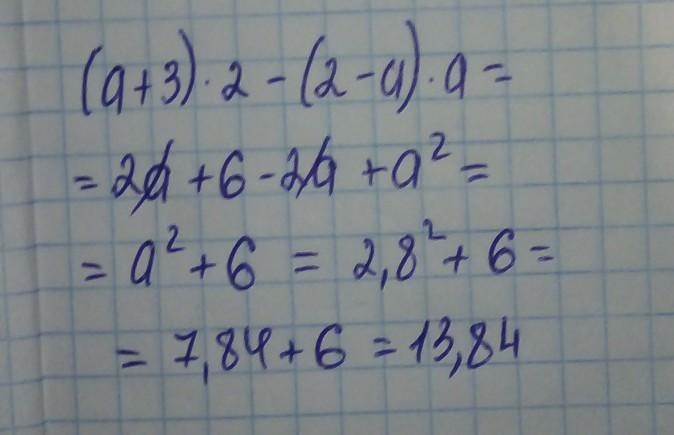 (a+3)·2-(2-a)·a=
=2a+6-2a+a²=
=a²+6=2,8²+6=
=7,84+6=13,84